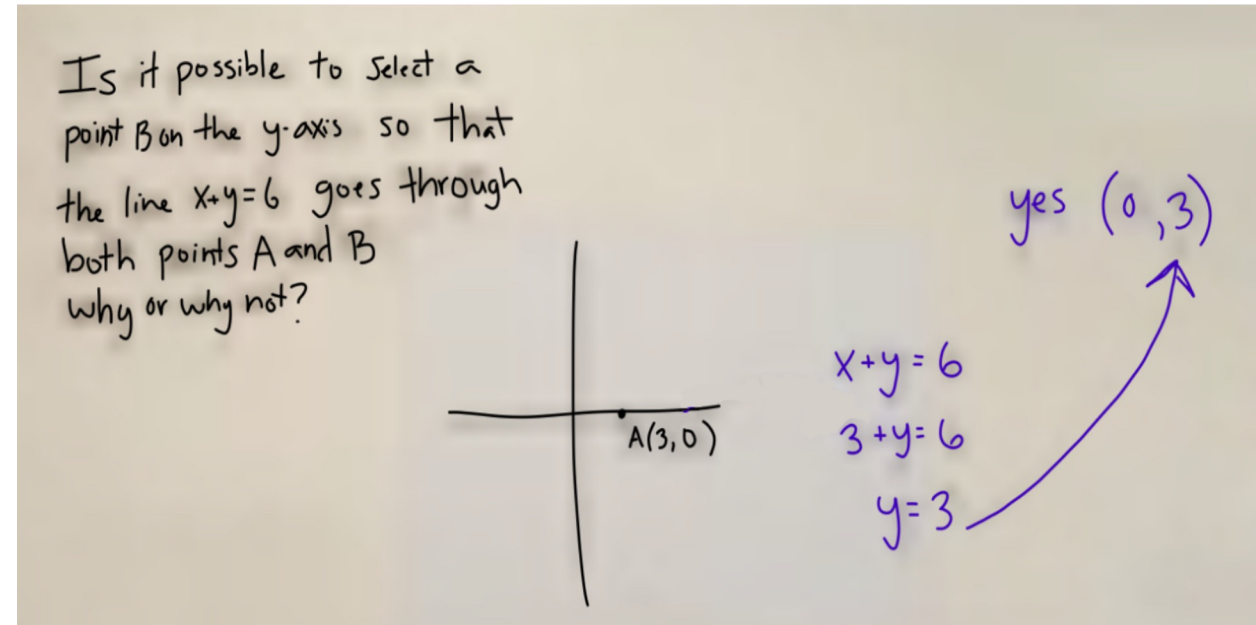 Is it possible to select a
point B on the y-axis so that
the line x+y=6 goes through
both points A and B
why or why not?
A(3,0)
yes (0,3)
x+y=6
3+y=6
y=3